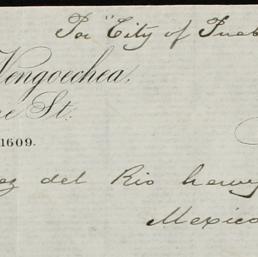 Per "City of Pueb
Vengoechea.
St.
1609.
ez del Rio
Mexico